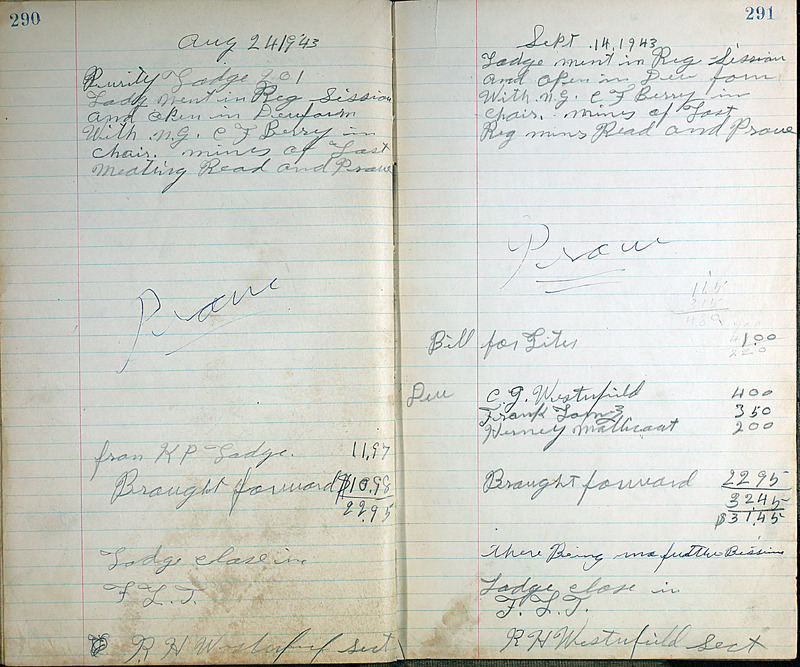 290
Aug 24 1943
Purity Lodge 201
Lodg ment in Reg Session
and open in Dew form
With N.G. C F Berry in
chair. mines of Last
Meating Read and Prove
Prove
fron K P Lodge. 11,97
Braught forward $10.98
22 95
Lodge close in
F. L. T.
R H Westerfield Sect
291
Sept. 14, 1943
Lodge ment in Reg Session
and open in Dew form
With N.G. C F Berry in
chair. mines of Last
Reg mins Read and Prove
Prove
115
Bill for Lites 1.00
Due C. G. Westerfield 4 00
Frank 3 50
2 00
Braught forward 22 95
32 45
$31,45
there Being no further Bissins
Lodge close in
F. L. T.
R H Westerfield Sect